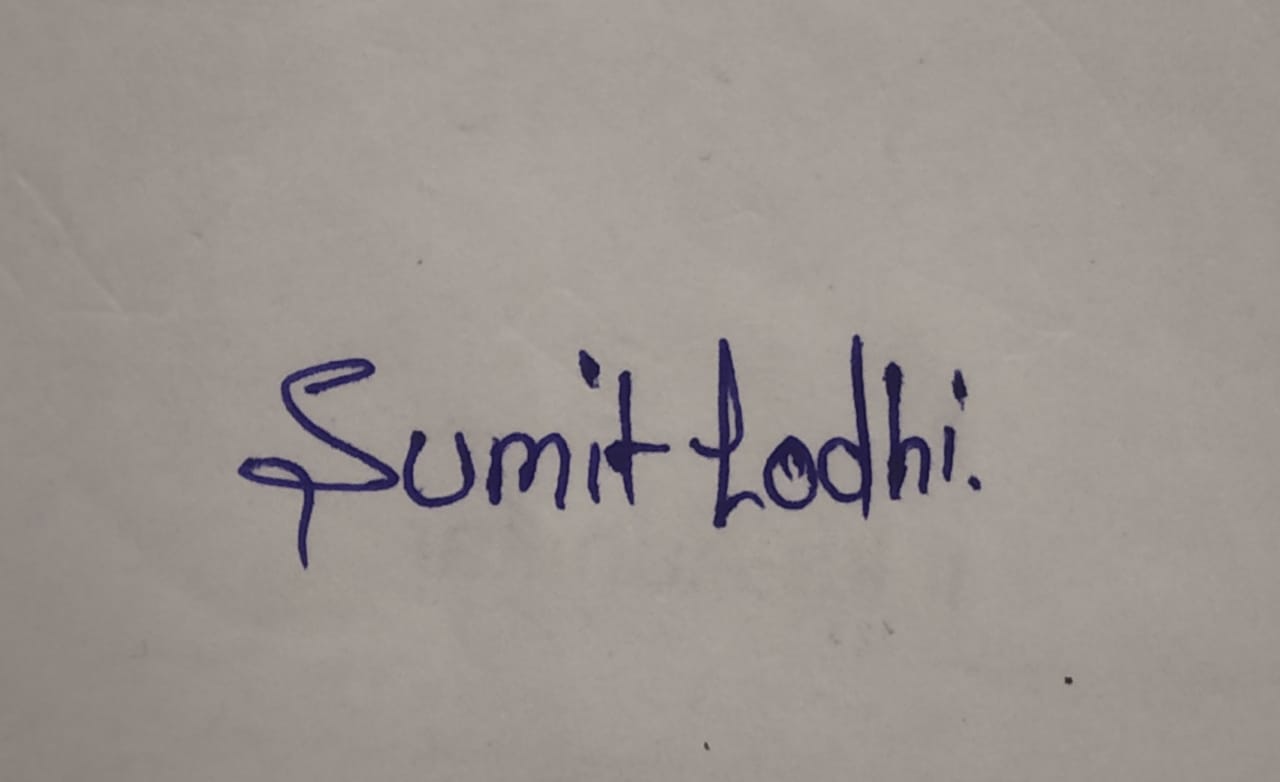 Sumit Lodhi.